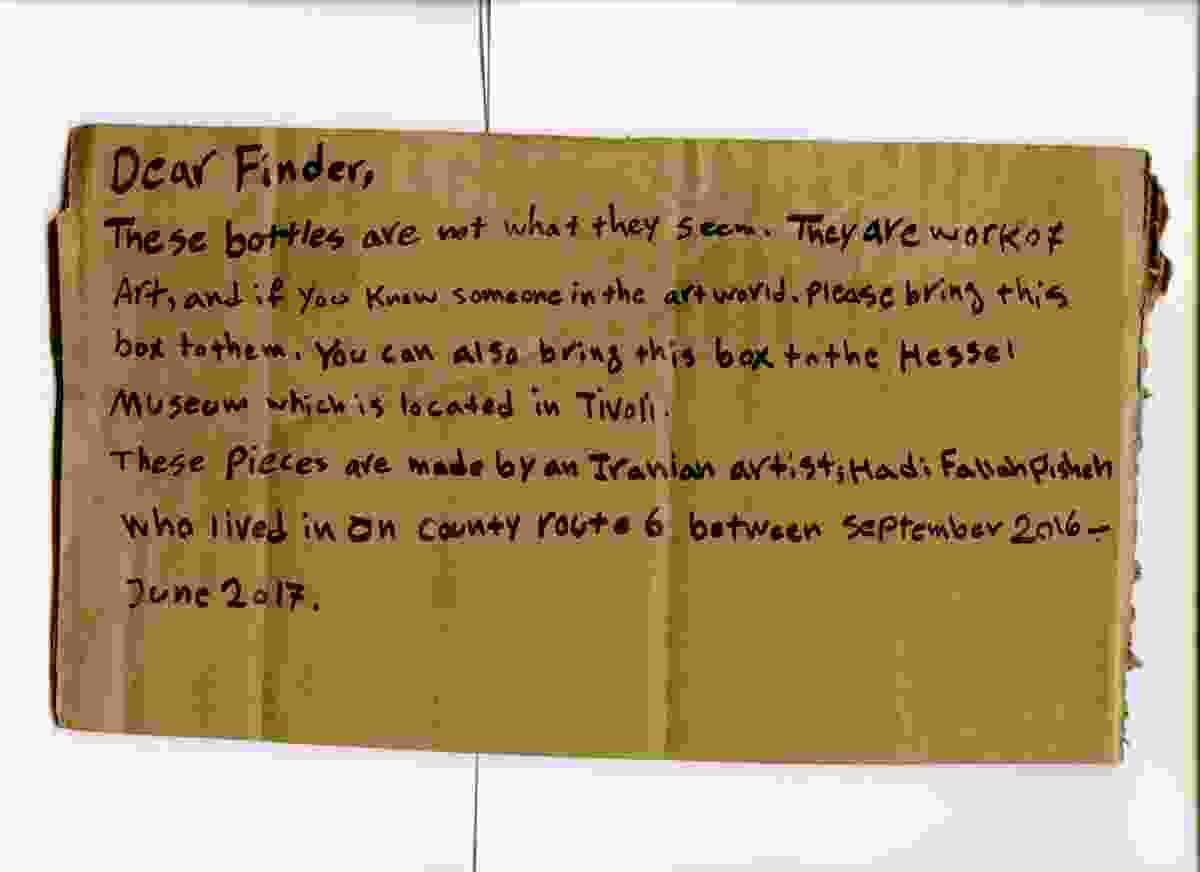 Dear Finder,
These bottles are not what they seem. They are work of
Art, and if you know someone in the artworld. please bring this
box to them. You can also bring this box to the Hessel
Museum which is located in Tivoli.
These pieces are made by an Iranian artist, Hadi Fallahpisheh
who lived in on county route 6 between september 2016-
June 2017.